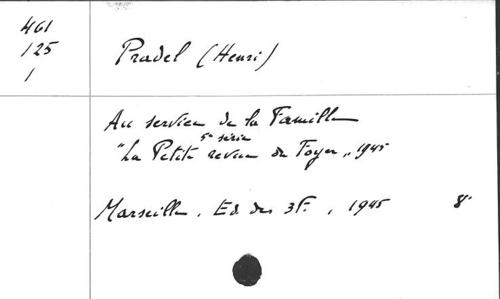 461
125
1
Pradel (Henri)
Au service de la Famille
5e série
"La Petite revue du Foyer", 1945
Marseille, Ed. des 3F., 1945 8°